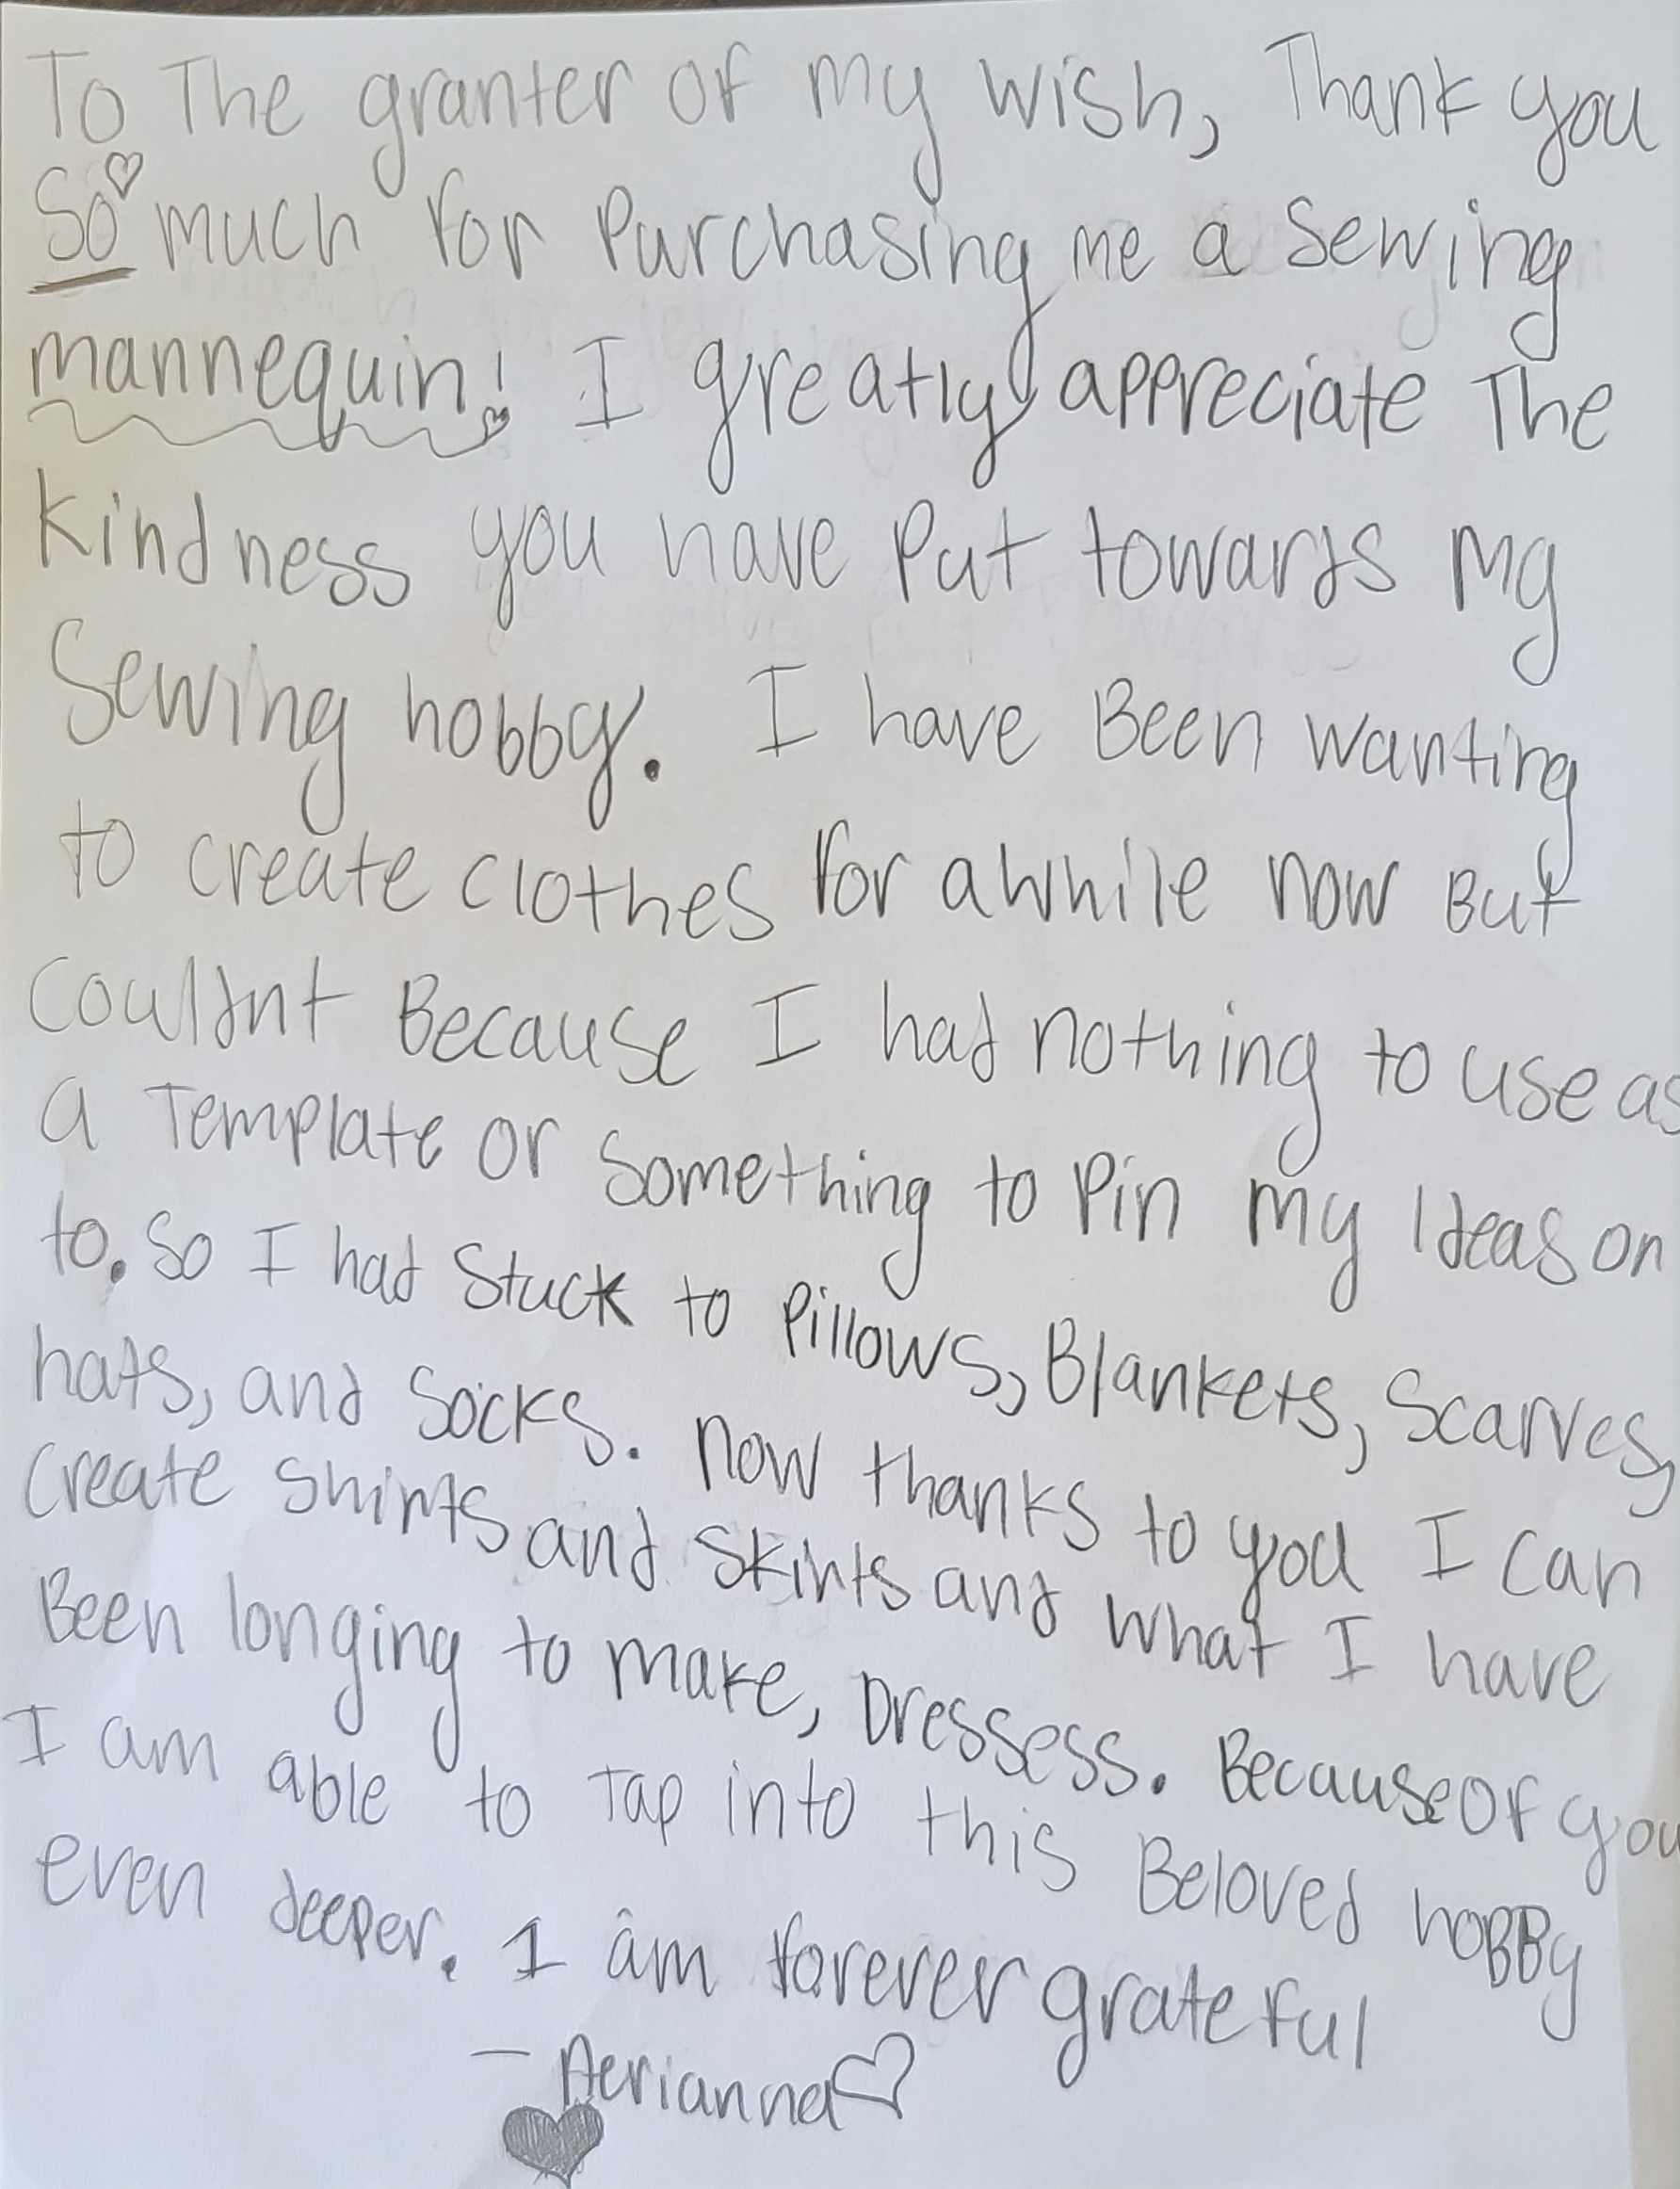 To The granter of my wish, Thank you
So much for Purchasing me a Sewing
mannequin! I greatly appreciate The
Kindness you have Put towards My
Sewing hobby. I have Been wanting
to create clothes for awhile now But
Couldnt Because I had nothing to use as
a Template or Something to Pin my Ideas on
to. So I had Stuck to Pillows, Blankets, Scarves,
hats, and Socks. now thanks to you I can
Create Shirts and Skirts and what I have
Been longing to make, Dressess. Because of you
I am able to Tap into this Beloved hoBBy
even deeper. I am forever grateful
— Aerianna